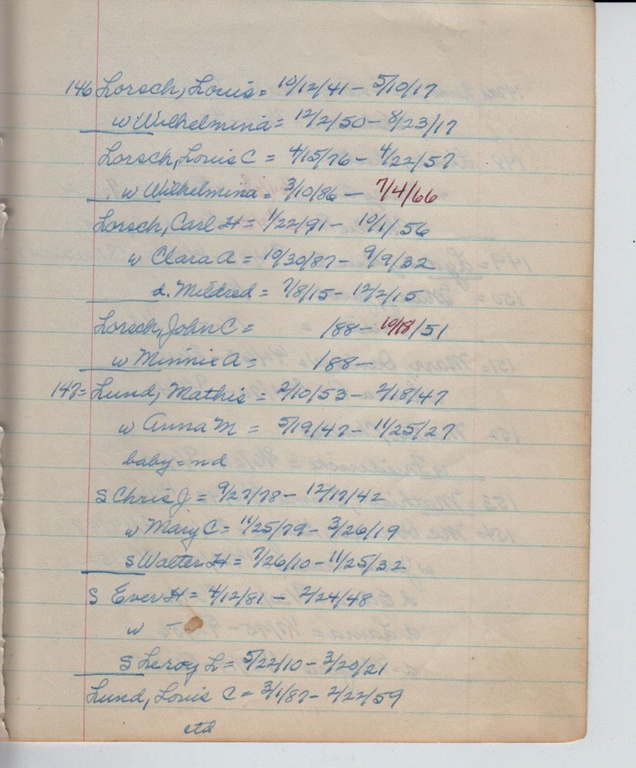 146 Lorsch, Louis = 10/12/41 - 5/10/17
w Wilhelmina = 12/2/50 - 8/23/17
Lorsch, Louis C = 4/15/76 - 4/22/57
w Wilhelmina = 3/10/86 - 7/4/66
Lorsch, Carl H = 1/22/91 - 10/1/56
w Clara A = 10/30/87 - 9/9/32
d. Mildred = 7/8/15 - 12/2/15
Lorsch, John C = /88 - 10/18/51
w Minnie A = /88 -
147 = Lund, Mathis = 2/10/53 - 2/18/47
w Anna M = 5/19/47 - 11/25/27
baby = nd
S Chris J = 9/27/78 - 12/17/42
w Mary C = 11/25/79 - 3/26/19
s Walter H = 7/26/10 - 11/25/32
S Ever H = 4/12/81 - 2/24/48
w -
s Leroy L = 5/22/10 - 3/20/21
Lund, Louis C = 3/1/87 - 2/22/59